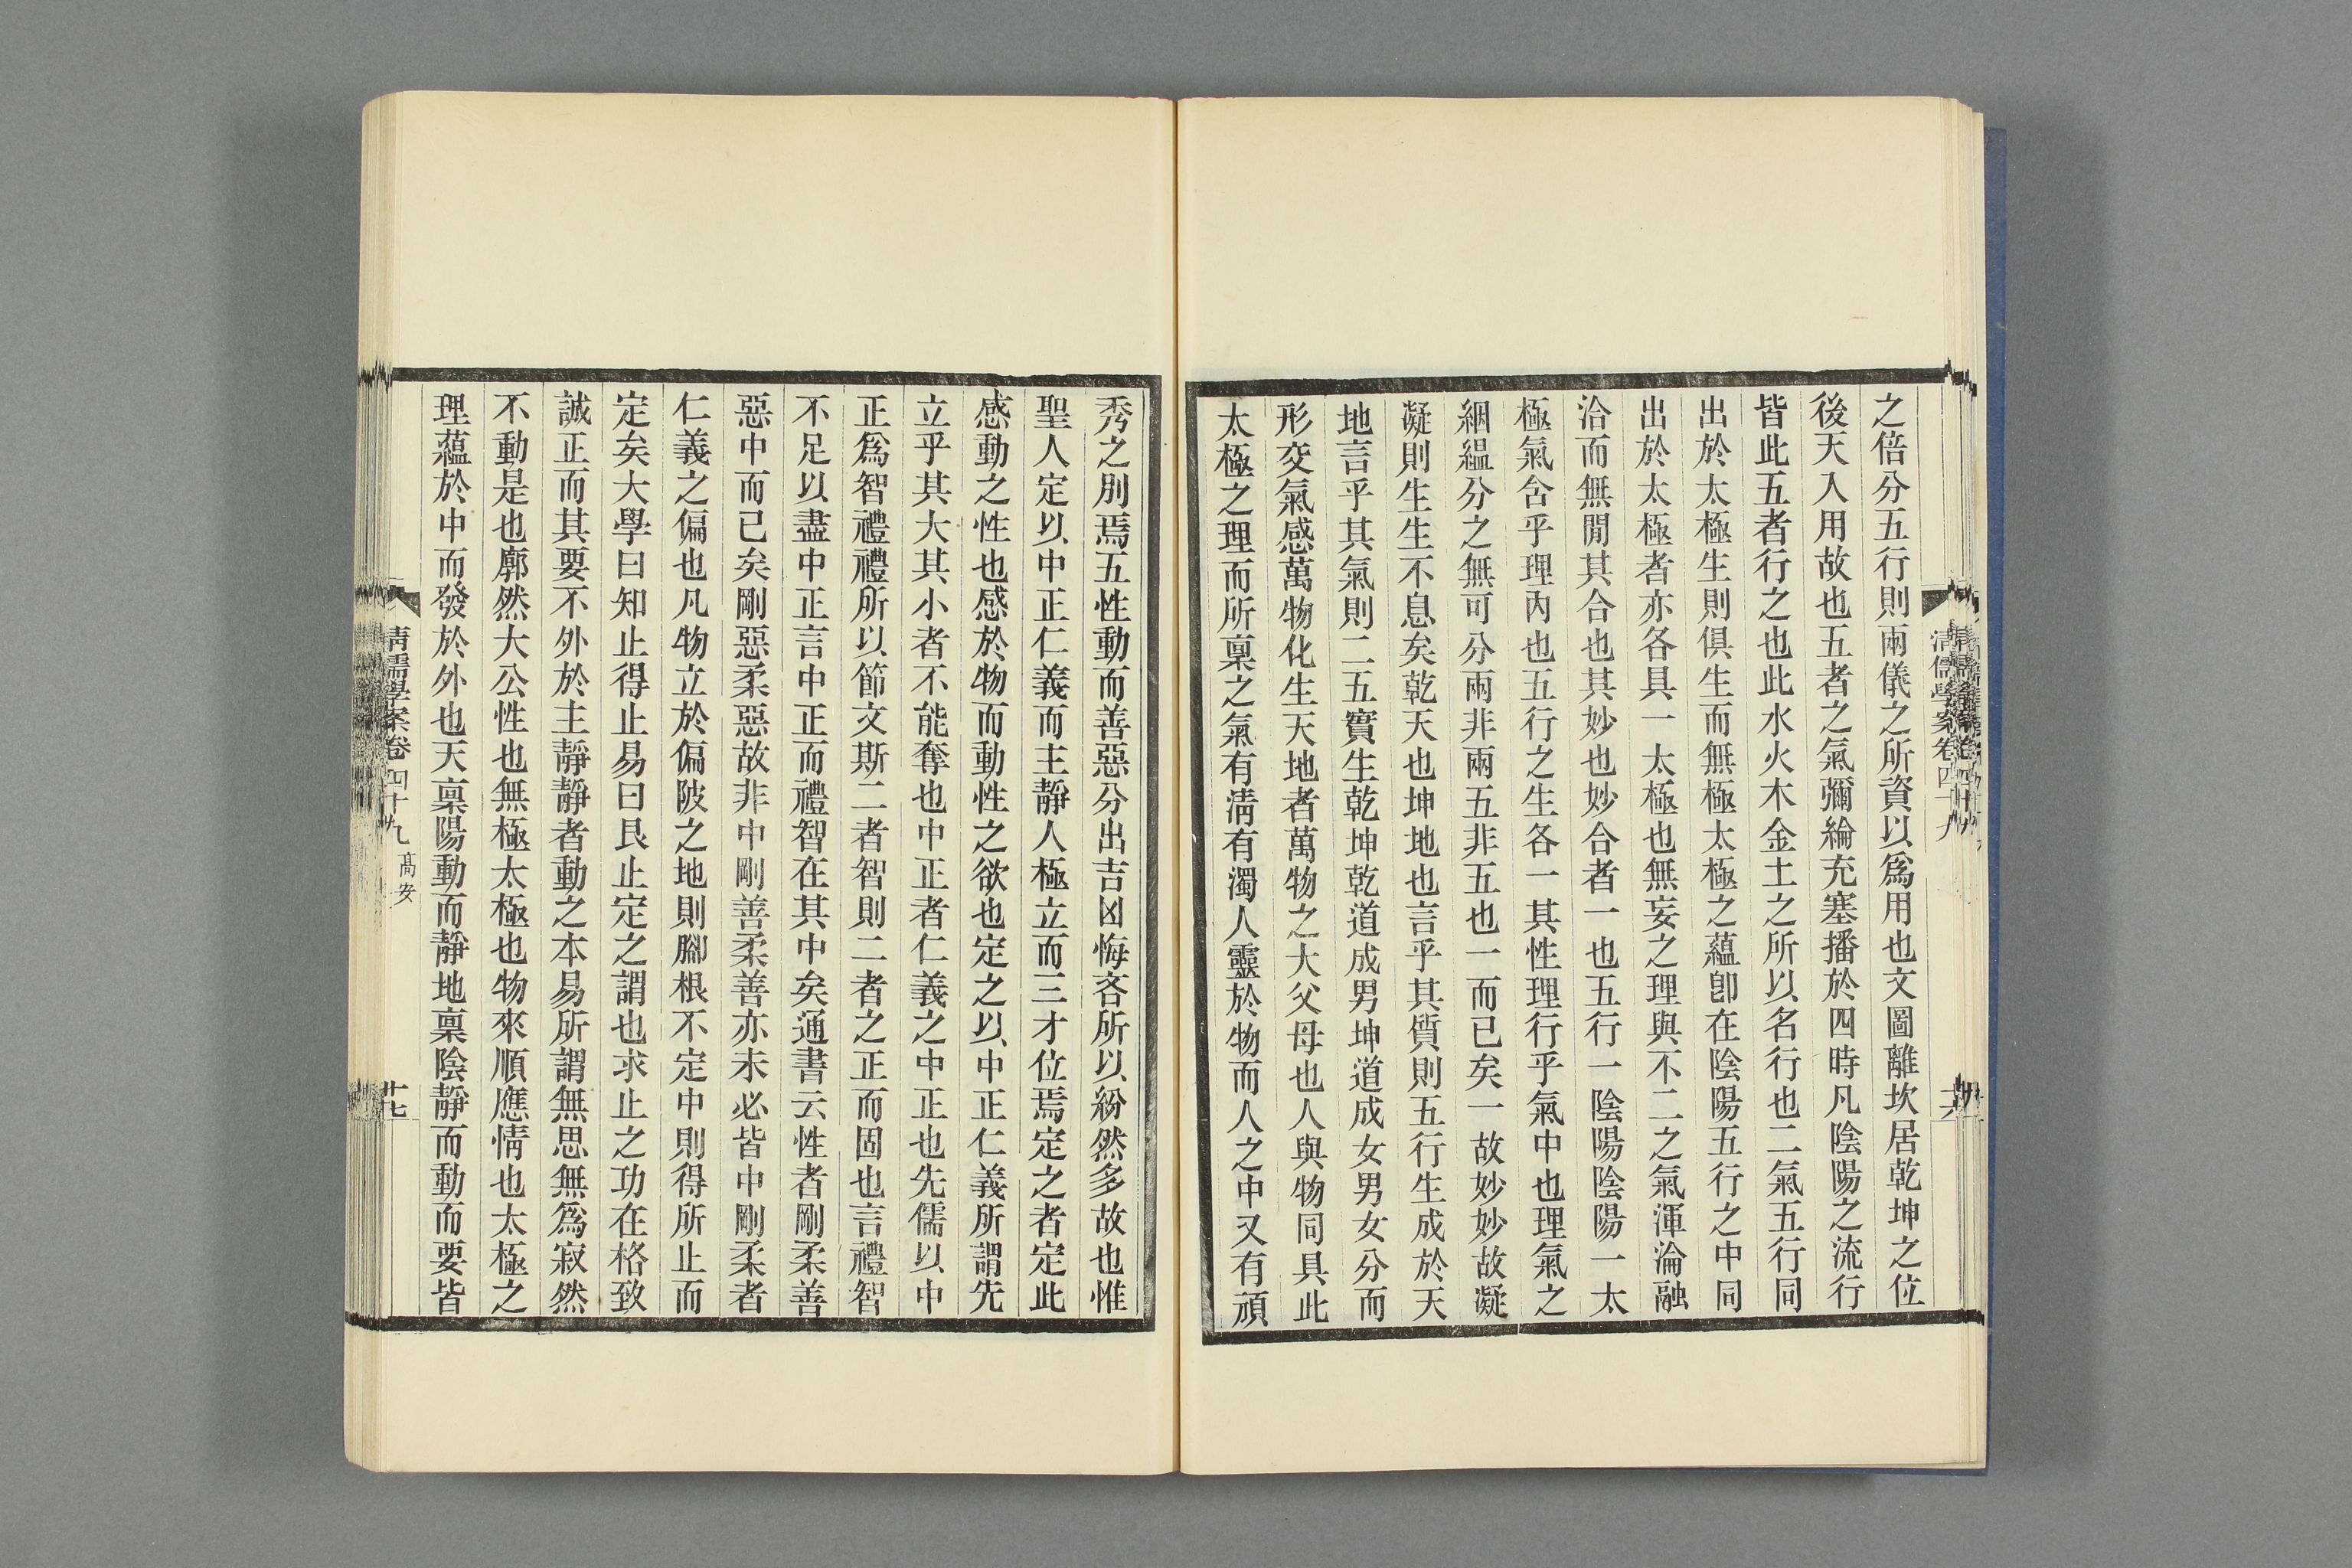 之倍分五行則兩儀之所資以爲用也文圖離坎居乾坤之位
後天入用故也五者之氣彌綸充塞播於四時凡陰陽之流行
皆此五者行之也此水火木金土之所以名行也二氣五行同
出於太極生則俱生而無極太極之蘊卽在陰陽五行之中同
出於太極者亦各具一太極也無妄之理與不二之氣渾淪融
洽而無閒其合也其妙也妙合者一也五行一陰陽陰陽一太
極氣含乎理內也五行之生各一其性理行乎氣中也理氣之
絪縕分之無可分兩非兩五非五也一而已矣一故妙妙故凝
凝則生生不息矣乾天也坤地也言乎其質則五行生成於天
地言乎其氣則二五實生乾坤乾道成男坤道成女男女分而
形交氣感萬物化生天地者萬物之大父母也人與物同具此
太極之理而所稟之氣有淸有濁人靈於物而人之中又有頑
秀之別焉五性動而善惡分出吉凶悔吝所以紛然多故也惟
聖人定以中正仁義而主靜人極立而三才位焉定之者定此
感動之性也感於物而動性之欲也定之以中正仁義所謂先
立乎其大其小者不能奪也中正者仁義之中正也先儒以中
正爲智禮禮所以節文斯二者智則二者之正而固也言禮智
不足以盡中正言中正而禮智在其中矣通書云性者剛柔善
惡中而已矣剛惡柔惡故非中剛善柔善亦未必皆中剛柔者
仁義之偏也凡物立於偏陂之地則腳根不定中則得所止而
定矣大學曰知止得止易曰艮止定之謂也求止之功在格致
誠正而其要不外於主靜靜者動之本易所謂無思無爲寂然
不動是也廓然大公性也無極太極也物來順應情也太極之
理蘊於中而發於外也天稟陽動而靜地稟陰靜而動而要皆
清儒學案卷四十九 高安
十七